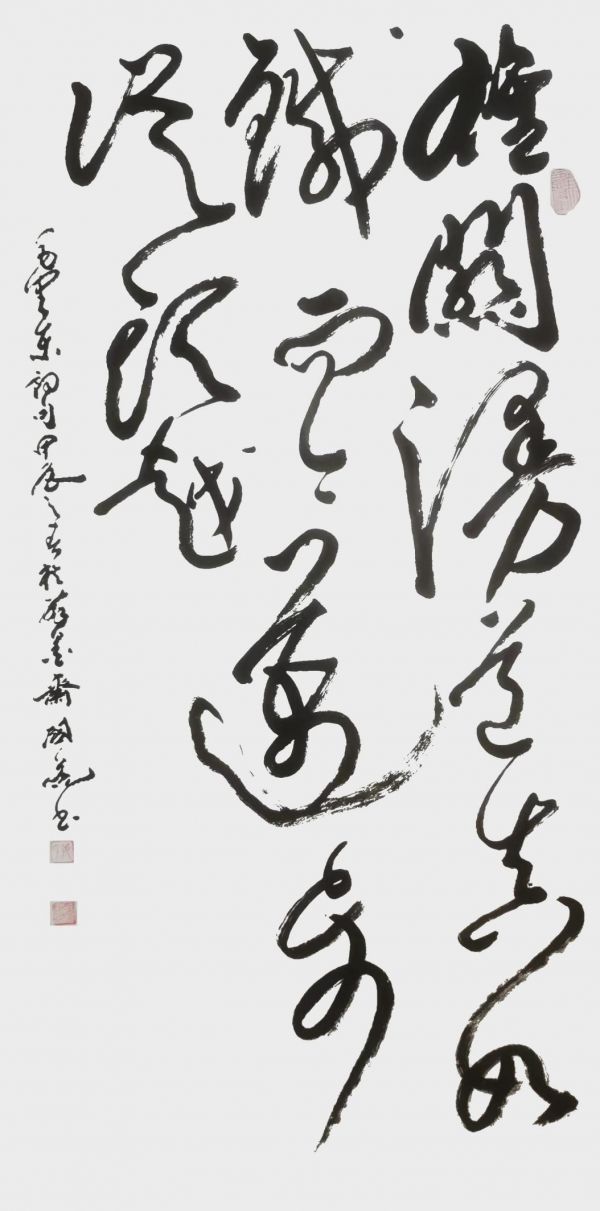 雄關漫道真如
鐵而今邁步
從頭越
毛澤東詞句甲辰之春於墨齋國書